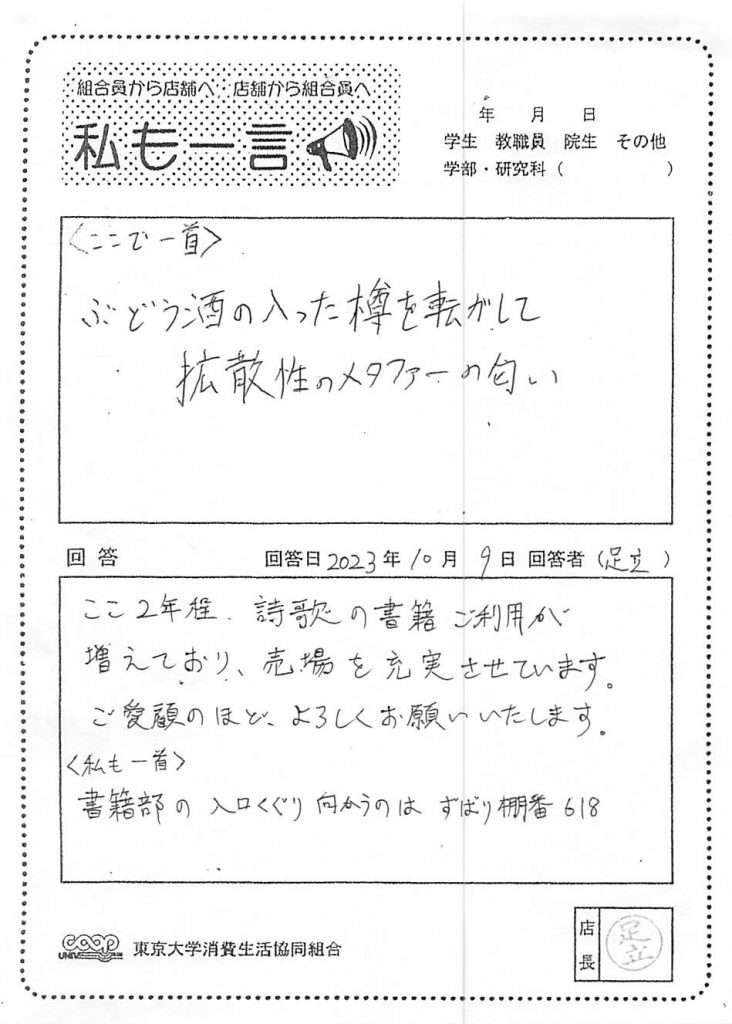 組合員から店舗へ 店舗から組合員へ
私も一言
年 月 日
学生 教職員 院生 その他
学部・研究科( )
〈ここで一首〉
ぶどう酒の入った樽を転がして
拡散性のメタファーの匂い
回答 回答日2023年10月9日 回答者(足立)
ここ2年程、詩歌の書籍ご利用が
増えており、売場を充実させています。
ご愛顧のほど、よろしくお願いいたします。
〈私も一首〉
書籍部の 入口くぐり 向かうのは ずばり棚番618
COOP
UNIV
東京大学消費生活協同組合
店長
足立